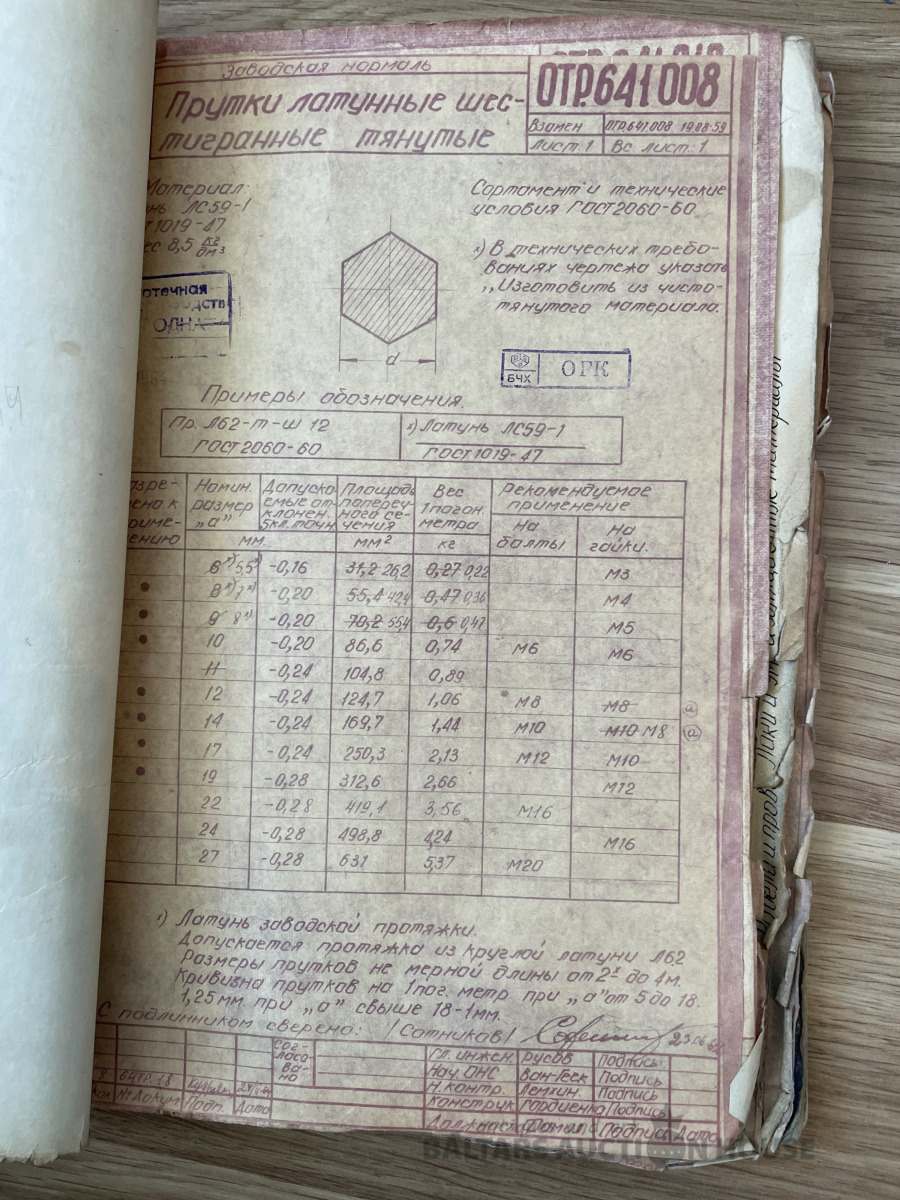 Заводская нормаль
Прутки латунные шес-
тигранные тянутые
ОТР.641008
Взамен ОТР.641.008 19.08.59
Лист: 1 Вс. лист: 1
Материал:
ЛС59-1
1019-47
8,5 кг/дм³
Сортамент и технические
условия ГОСТ 2060-60
х) В технических требо-
ваниях чертежа указать
„Изготовить из чисто-
тянутого материала.
БЧХ ОГК
d
Примеры обозначения.
Пр. Л62-т-ш 12
ГОСТ 2060-60
х) Латунь ЛС59-1
ГОСТ 1019-47
Номин. размер „а" Допуска-емые от-клонен. 5кл. точн. Площадь попереч-ного се-чения Вес 1 погон. метра Рекомендуемое применение
На балты На гайки.
мм. мм² кг
6х) 5,5х) -0,16 31,2 26,2 0,27 0,22 М3
8х) 7х) -0,20 55,4 42,4 0,47 0,36 М4
9 8х) -0,20 70,2 55,4 0,6 0,47 М5
10 -0,20 86,6 0,74 М6 М6
11 -0,24 104,8 0,89
12 -0,24 124,7 1,06 М8 М8
14 -0,24 169,7 1,44 М10 М10 М8
17 -0,24 250,3 2,13 М12 М10
19 -0,28 312,6 2,66 М12
22 -0,28 419,1 3,56 М16
24 -0,28 498,8 4,24 М16
27 -0,28 631 5,37 М20
х) Латунь заводской протяжки.
Допускается протяжка из круглой латуни Л62
Размеры прутков не мерной длины от 2х до 4м.
Кривизна прутков на 1 пог. метр при „а" от 5 до 18.
1,25 мм. при „а" свыше 18-1мм.
С подлинником сверено: /Сотников/
Сог-
ласо-
ва-
но
Гл. инжен. Русов Подпись
Нач. ОНС Вон-Геек Подпись
Н. контр Лемкин. Подпись
Конструк Гордиенко Подпись
Подпись Дата
64ТР.18
№ Докум Подп. Дата
BALTARS AUCTION HOUSE